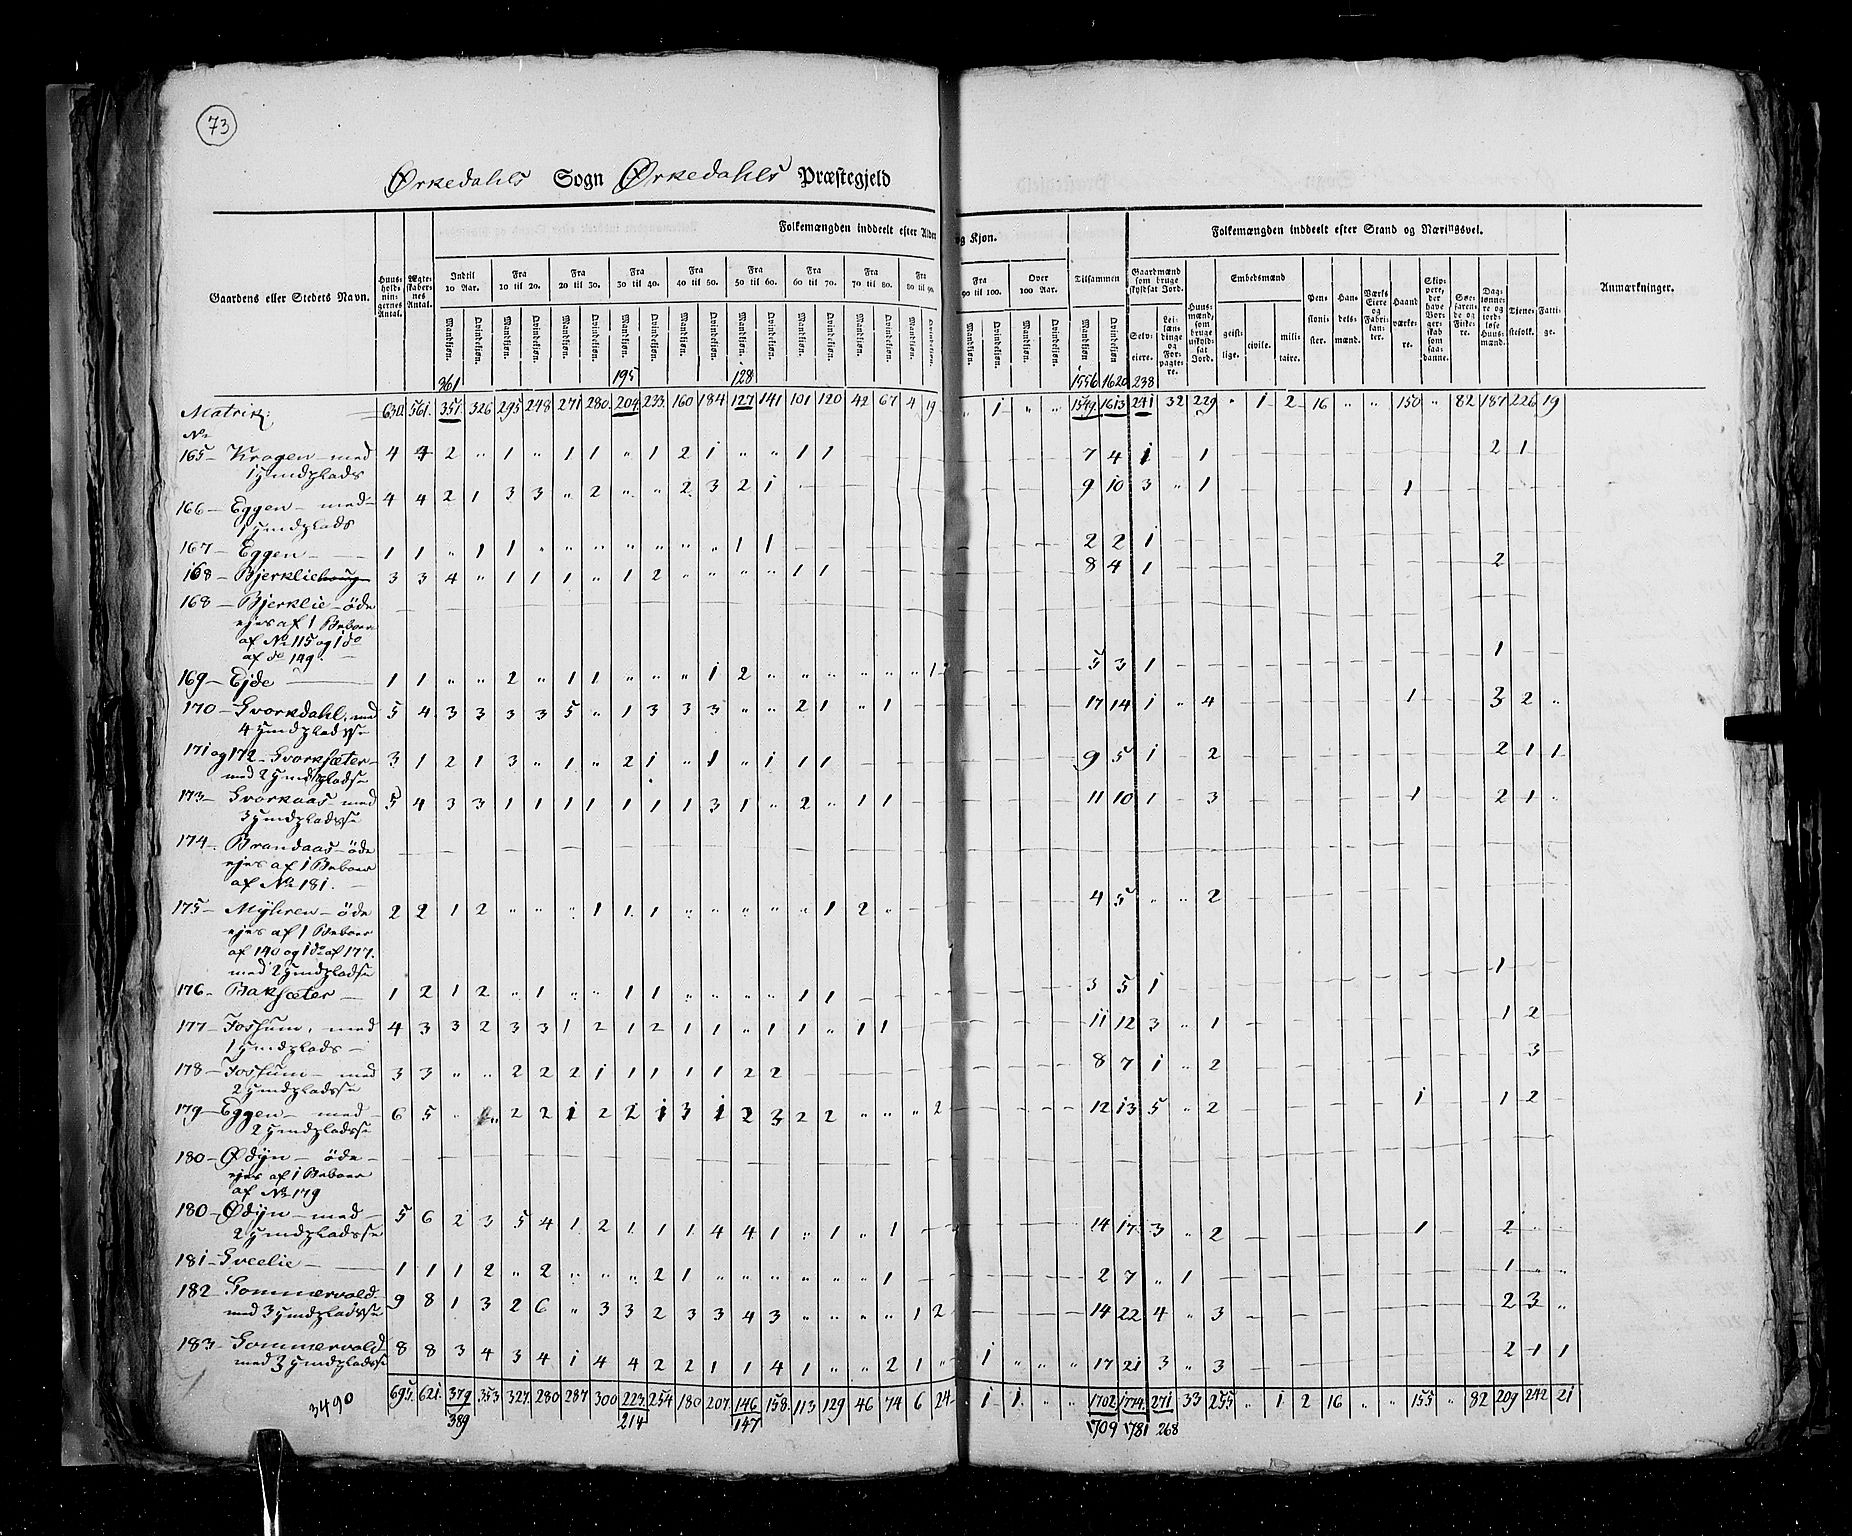 73
Ørkedahls Sogn Ørkedahls Præstegjeld
Folkemængden inddeelt efter Alder og Kjøn. Folkemængden inddeelt efter Stand og Næringsvei.
Gaardens eller Stedets Navn. Huusholdningernes Antal. Ægteskabernes Antal. Indtil 10 Aar. Fra 10 til 20. Fra 20 til 30. Fra 30 til 40. Fra 40 til 50. Fra 50 til 60. Fra 60 til 70. Fra 70 til 80. Fra 80 til 90. Fra 90 til 100. Over 100 Aar. Tilsammen Gaardmænd som bruge skyldsat Jord. Huusmænd, som bruge uskyldsat Jord. Embedsmænd Pensionister. Handelsmænd. Værks Eiere og Fabrikanter. Haandværkere. Skippere, der have Borgerskab som saadanne. Søefarende og Fiskere. Daglønnere og jordløse Huusmænd. Tjenestefolk. Fattige. Anmærkninger.
Mandkjøn. Qvindekjøn. Selveiere. Leilændinge og Forpagtere. geistlige. civile. militaire.
361 195 128 1556 1620 238
Matrik: 630 561 351 326 295 248 271 280 204 233 160 184 127 141 101 120 42 67 4 19 " 1 " " 1549 1613 241 32 229 " 1 2 16 " " 150 " 82 187 226 19
No
165 – Kragen – med 4 4 2 " 1 " 1 1 " 1 2 1 " " 1 1 7 4 1 – 1 2 1
1 Huusplads
166 – Eggen – med 4 4 2 1 3 3 " 2 " " 2 3 2 1 9 10 3 " 1 1
1 Huusplads
167 – Eggen – 1 1 " 1 1 " " " " " " " 1 1 2 2 1
168 – Bjerklie 3 3 4 " 1 1 1 " 1 2 " " " " 1 1 8 4 1 2
168 – Bjerklie – öde
ejes af 1 Beboer
af No 115 og 1 do
af do 149.
169 – Ejde 1 1 " " 2 " 1 1 " " " 1 2 " " " " " " 1 5 3 1 1
170 – Svorkdahl, med 5 4 3 3 3 3 5 " 1 3 3 3 " " 2 1 " 1 17 14 1 " 4 1 3 2 "
4 Huuspladsse
171 og 172 – Svorksæter 3 1 2 1 3 " 1 " 2 1 " 1 " 1 1 1 9 5 1 – 2 2 1 1
med 2 Huuspladse
173 – Svorkaas – med 5 4 3 3 1 1 1 1 1 1 1 3 1 " 2 " 1 1 11 10 1 – 3 1 2 1 "
3 Huuspladsse
174 – Brandaas – öde
ejes af 1 Beboer
af No 181.
175 – Mÿhren – öde 2 2 1 2 " " " 1 1 1 " " " " " 1 2 " 4 5 " " 2
ejes af 1 Beboer
af 140 og 1 do af 177.
med 2 Huuspladse
176 – Baksæter – 1 2 1 2 " 1 " " 1 1 " " " " 1 1 3 5 1 1
177 – Fossum, med 4 3 3 2 3 3 1 2 1 2 1 1 " 1 1 " 1 1 11 12 3 " 1 1 2
1 Huusplads –
178 – Fossum – med 3 3 " " 2 2 2 1 1 1 1 1 2 2 8 7 1 " 2 3
2 Huuspladsse
179 – Eggen – med 6 5 " " 2 2 1 2 2 1 3 1 2 3 2 2 " " " 2 12 13 5 " 2 1 1 2
2 Huuspladsse
180 – Ødÿn – öde –
ejes af 1 Beboer
af No 179
180 – Ødÿn – med 5 6 2 3 5 4 1 2 1 1 1 4 4 1 " 1 " 1 14 17 3 " 2 1 2 " "
2 Huuspladsse
181 – Sveelie – 1 1 1 2 " 2 " " " 2 1 " " " " " " 1 2 7 " 1 1 " "
182 – Sommervold 9 8 1 3 2 6 " 3 3 2 3 3 4 3 " " " " 1 2 14 22 4 – 3 2 3 "
med 3 Huuspladsse
183 – Sommervold 8 8 3 4 3 4 1 4 4 2 2 1 1 4 1 " " 2 1 " 1 " " " 17 21 3 " 3 2 1 1
med 3 Huuspladsse
3490 695 621 379 353 327 280 287 300 223 254 180 207 146 158 113 129 46 74 6 24 1 1 " " 1702 1774 271 33 255 " 1 2 16 " " 155 " 82 209 242 21
389 214 147 1709 1781 268